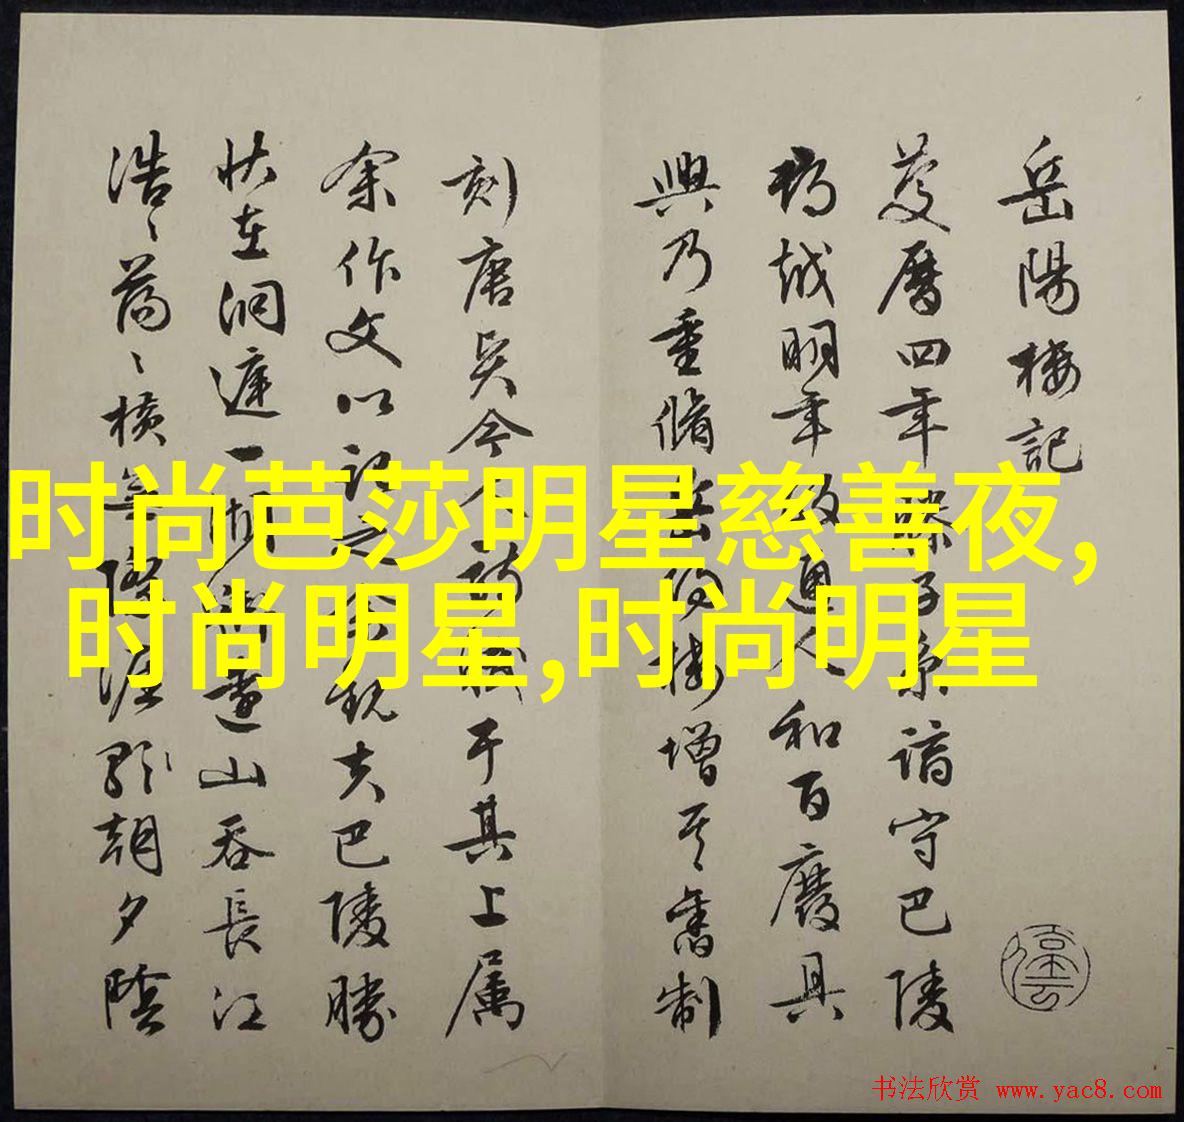 岳陽樓記
慶曆四年滕子京謫守巴陵
郡越明年政通人和百廢具
興乃重脩岳陽樓增其舊制
刻唐賢今人詩賦于其上屬
余作文以記之予觀夫巴陵勝
狀在洞庭一湖銜遠山吞長江
浩〻蕩〻橫無際涯朝夕陰
时尚芭莎明星慈善夜,
时尚明星,时尚明星
书法欣赏 www.yac8.com